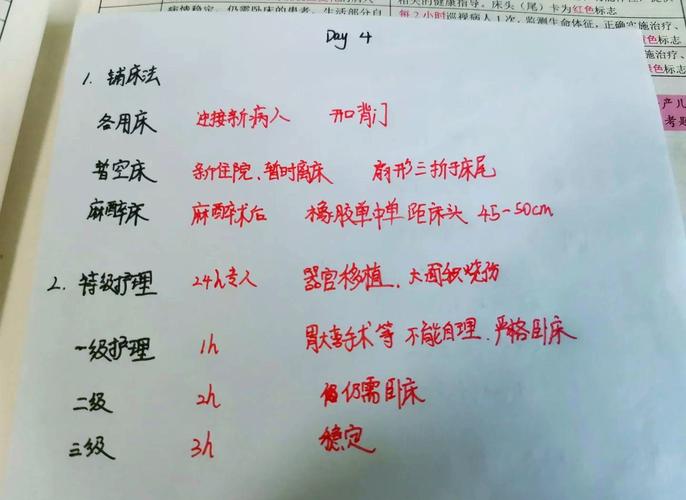 病情稳定，仍需卧床的患者，生活部分自
相关的健康指导。床头（尾）卡为红色标志
每2小时巡视病人1次，监测生命体征，正确实施治疗、
施治疗、
色标志
产儿
考题
Day 4
1. 铺床法
各用床 迎接新病人 开口背门
暂空床 新住院、暂时离床 扇形三折于床尾
麻醉床 麻醉术后 橡胶单中单 距床头 45-50cm
2. 特级护理 24h专人 器官移植、大面积烧伤
一级护理 1h 胃大手术等 不能自理、严格卧床
二级 2h 仍需卧床
三级 3h 稳定